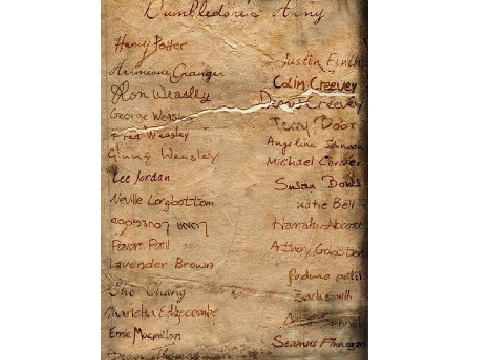 Dumbledore's Army
Harry Potter
Hermione Granger
Ron Weasley
George Weasley
Fred Weasley
Ginny Weasley
Lee Jordan
Neville Longbottom
Parvati Patil
Lavender Brown
Cho Chang
Marietta Edgecombe
Ernie Macmillan
Dean Thomas
Justin Finch
Colin Creevey
Dennis Creevey
Terry Boot
Angelina Johnson
Michael Corner
Susan Bones
Katie Bell
Hannah Abbott
Anthony Goldstein
Padma patil
Zach smith
Seamus Finnegan